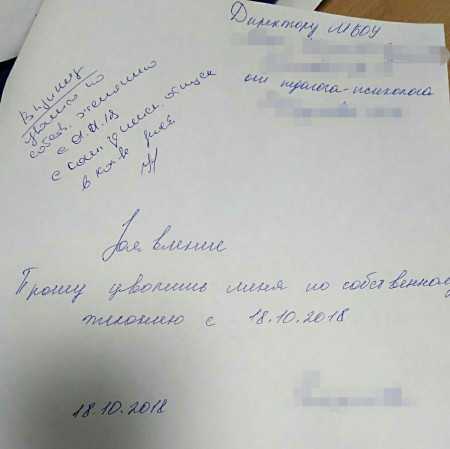 Директору МБОУ
от педагога-психолога
В приказ
уволить по
собств. желанию
с
с комп
в кол-ве дней
Заявление
Прошу уволить меня по собственному
желанию с 18.10.2018
18.10.2018